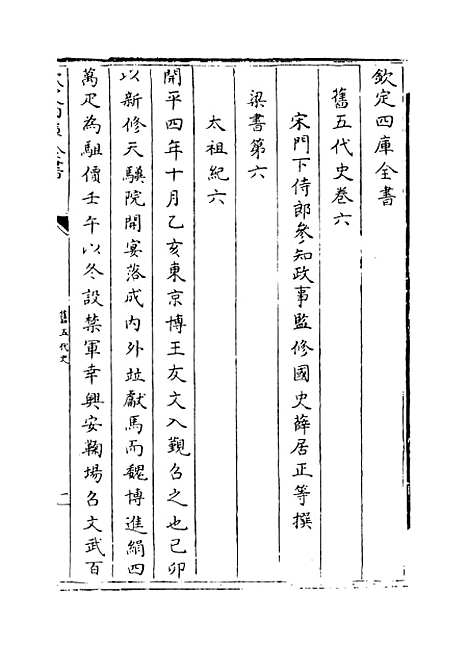 欽定四庫全書
舊五代史卷六
宋門下侍郎參知政事監修國史薛居正等撰
梁書第六
太祖紀六
開平四年十月乙亥東京博王友文入覲召之也己卯
以新修天驥院開宴落成内外竝獻馬而魏博進絹四
萬疋為駔價壬午以冬設禁軍幸興安鞠場召文武百
舊五代史